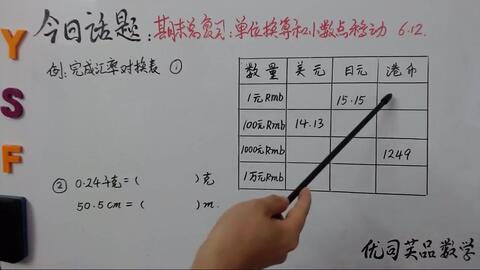 YSF
今日话题:期末总复习:单位换算和小数点移动 6.12.
例:完成汇率对换表 ①
数量 美元 日元 港币
1元Rmb 15.15
100元Rmb 14.13
1000元Rmb 1249
1万元Rmb
② 0.24千克=( )克
50.5cm=( )m.
优司芙品数学